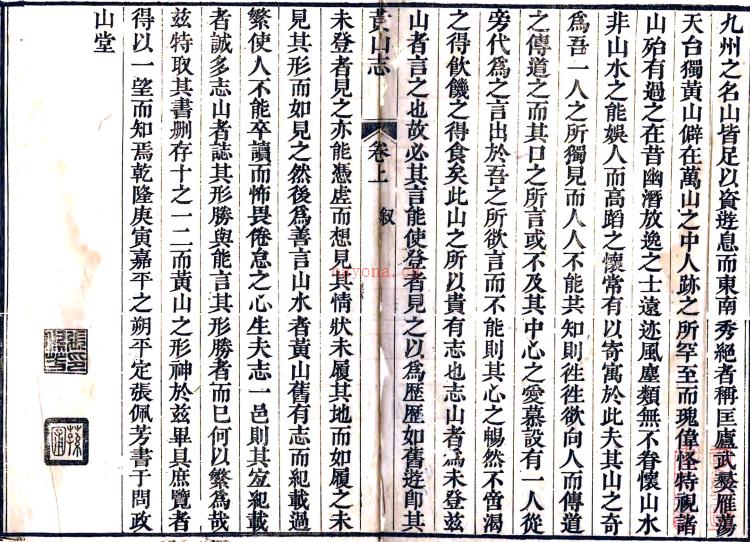 九州之名山皆足以資遊息而東南秀絕者稱匡廬武婁雁蕩
天台獨黃山僻在萬山之中人跡之所罕至而瑰偉怪特視諸
山殆有過之在昔幽潛放逸之士遠迹風塵類無不眷懷山水
非山水之能娛人而高蹈之懷常有以寄寓於此夫其山之奇
爲吾一人之所獨見而人人不能共知則徃徃欲向人而傳道
之傳道之而其口之所言或不及其中心之愛慕設有一人從
旁代爲之言出於吾之所欲言而不能則其心之暢然不啻渴
之得飲饑之得食矣此山之所以貴有志也志山者爲未登茲
山者言之也故必其言能使登者見之以爲歷歷如舊遊卽其
黃山志 卷上 叙
未登者見之亦能憑虛而想見其情狀未履其地而如履之未
見其形而如見之然後爲善言山水者黃山舊有志而紀載過
繁使人不能卒讀而怖畏倦怠之心生夫志一邑則其宜紀載
者誠多志山者誌其形勝與能言其形勝者而已何以繁爲哉
茲特取其書刪存十之一二而黃山之形神於茲畢具庶覽者
得以一望而知焉乾隆庚寅嘉平之朔平定張佩芳書于問政
山堂